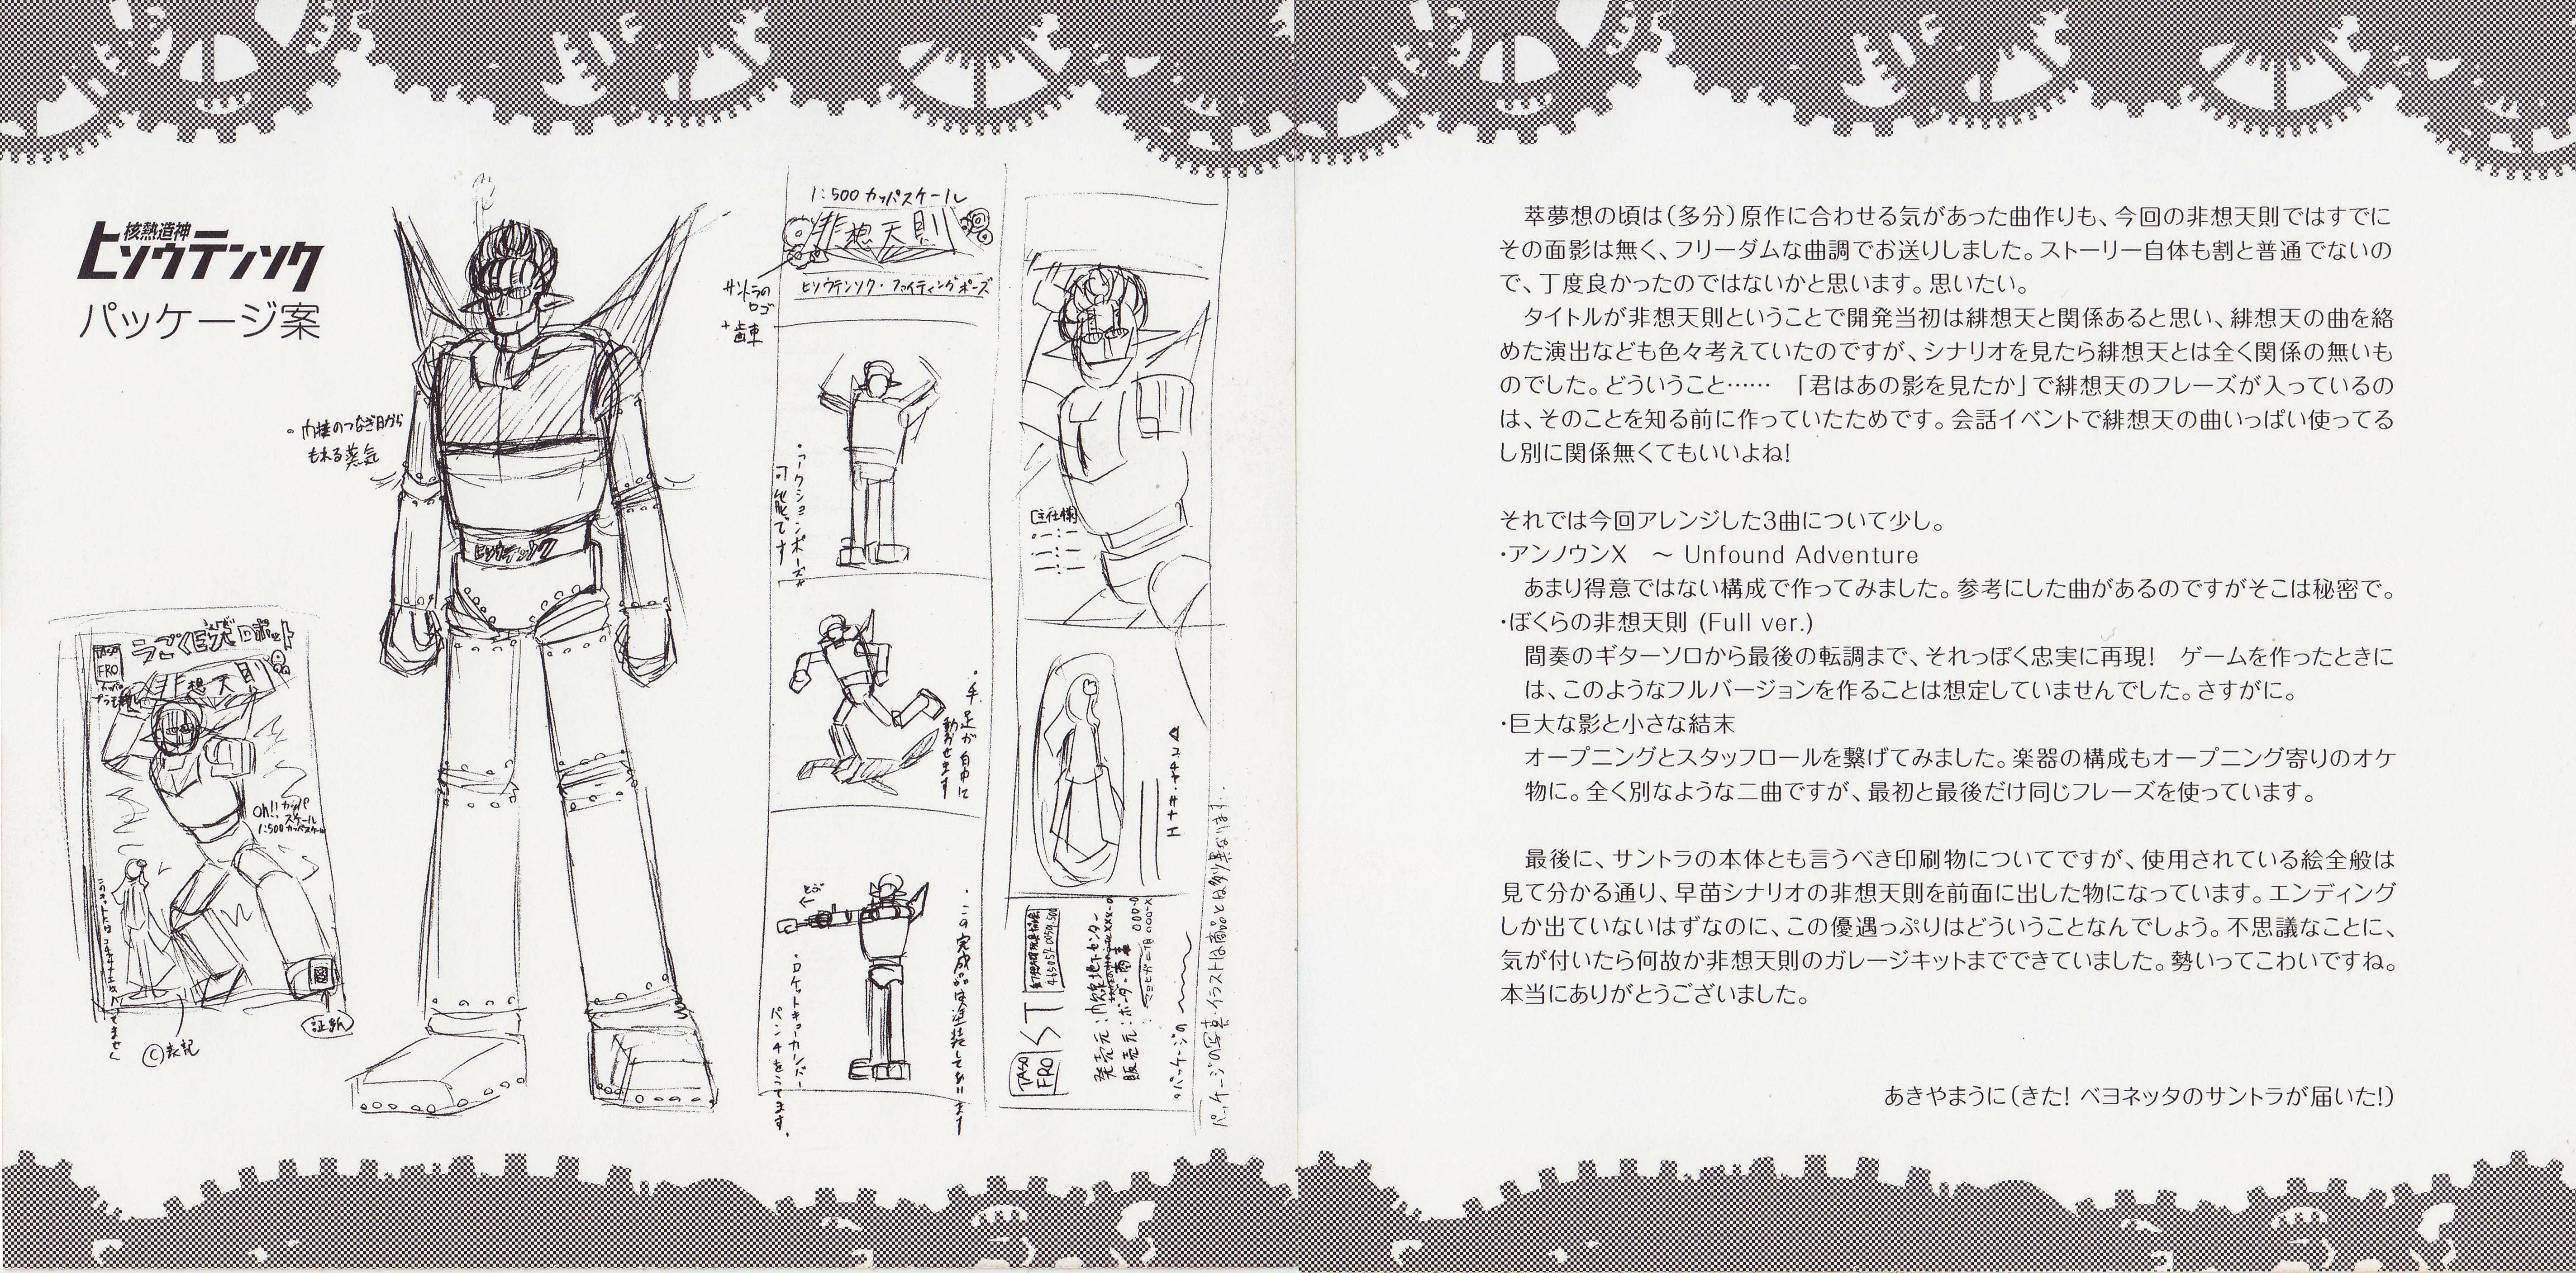 核熱造神
ヒソウテンソク
パッケージ案
・内接のつなぎ目から
もれる蒸気
ヒソウテンソク
うごく巨大ロボット
TASO
FRO
非想天則
Oh!! カッパ
スケール
1:500カッパスケール
©表記
証紙
1:500カッパスケール
非想天則
サントラの
ロゴ
+歯車
ヒソウテンソク・ファイティングポーズ
・アクションポーズが
可能です
・手足が自由に
動かせます
とぶ
・ロケットキューカンバー
パンチをうてます。
・この完成品は塗装してあります
[主仕様]
コチヤ・サナエ
TASO
FRO
ST
発売元:
販売元:
・パッケージの
パッケージの写真・イラストは商品とは多少異なります。
萃夢想の頃は(多分)原作に合わせる気があった曲作りも、今回の非想天則ではすでに
その面影は無く、フリーダムな曲調でお送りしました。ストーリー自体も割と普通でないの
で、丁度良かったのではないかと思います。思いたい。
タイトルが非想天則ということで開発当初は緋想天と関係あると思い、緋想天の曲を絡
めた演出なども色々考えていたのですが、シナリオを見たら緋想天とは全く関係の無いも
のでした。どういうこと…… 「君はあの影を見たか」で緋想天のフレーズが入っているの
は、そのことを知る前に作っていたためです。会話イベントで緋想天の曲いっぱい使ってる
し別に関係無くてもいいよね!
それでは今回アレンジした3曲について少し。
・アンノウンX ～ Unfound Adventure
あまり得意ではない構成で作ってみました。参考にした曲があるのですがそこは秘密で。
・ぼくらの非想天則 (Full ver.)
間奏のギターソロから最後の転調まで、それっぽく忠実に再現! ゲームを作ったときに
は、このようなフルバージョンを作ることは想定していませんでした。さすがに。
・巨大な影と小さな結末
オープニングとスタッフロールを繋げてみました。楽器の構成もオープニング寄りのオケ
物に。全く別なような二曲ですが、最初と最後だけ同じフレーズを使っています。
最後に、サントラの本体とも言うべき印刷物についてですが、使用されている絵全般は
見て分かる通り、早苗シナリオの非想天則を前面に出した物になっています。エンディング
しか出ていないはずなのに、この優遇っぷりはどういうことなんでしょう。不思議なことに、
気が付いたら何故か非想天則のガレージキットまでできていました。勢いってこわいですね。
本当にありがとうございました。
あきやまうに(きた! ベヨネッタのサントラが届いた!)